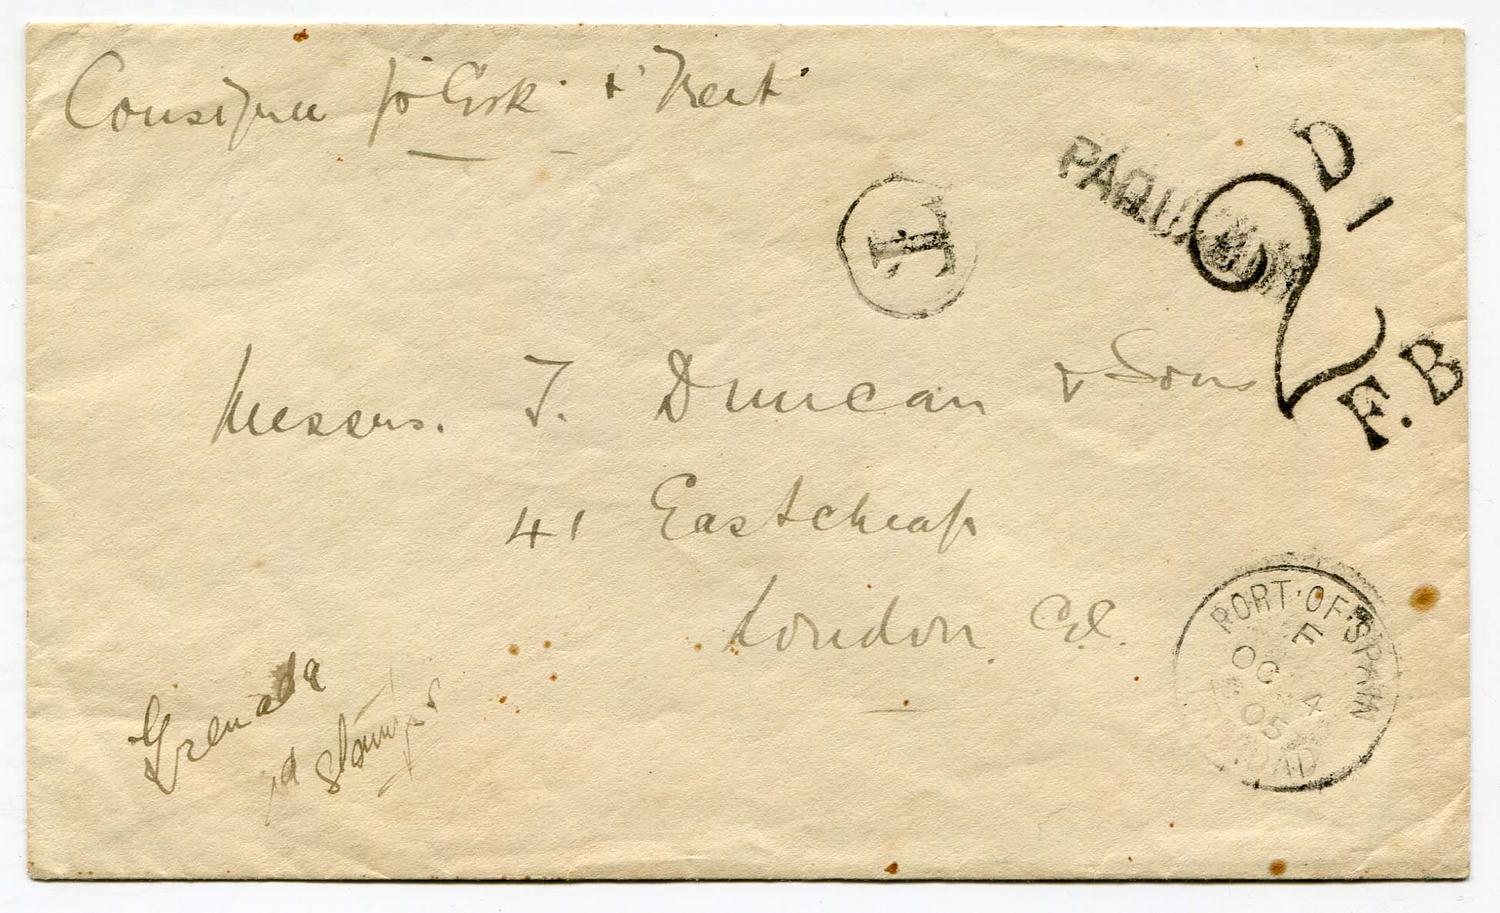 Consignee p "Esk" & "Trent"
PAQUEBOT
T
2D
F.B
Messrs. T. Duncan & Sons
41 Eastcheap
London E.C.
PORT-OF-SPAIN
F
OC 4
05
TRINIDAD
Grenada
1d stamps